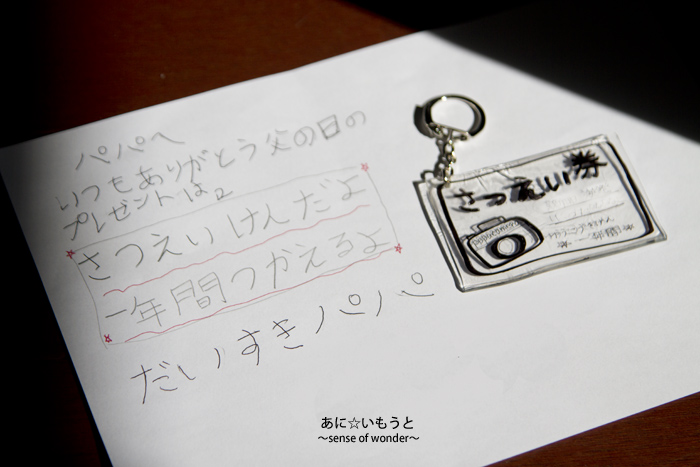 パパへ
いつもありがとう父の日の
プレゼントは。
さつえいけんだよ
一年間つかえるよ
だいすきパパ
さつえい券
あに☆いもうと
～sense of wonder～